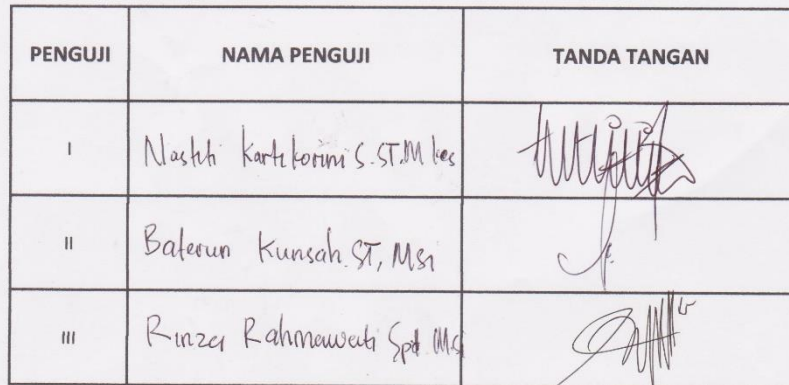 PENGUJI NAMA PENGUJI TANDA TANGAN
I Nastiti Kartikorini S.ST, M kes
II Baterun Kunsah. ST, Msi
III Rinza Rahmawati Spd M.Si